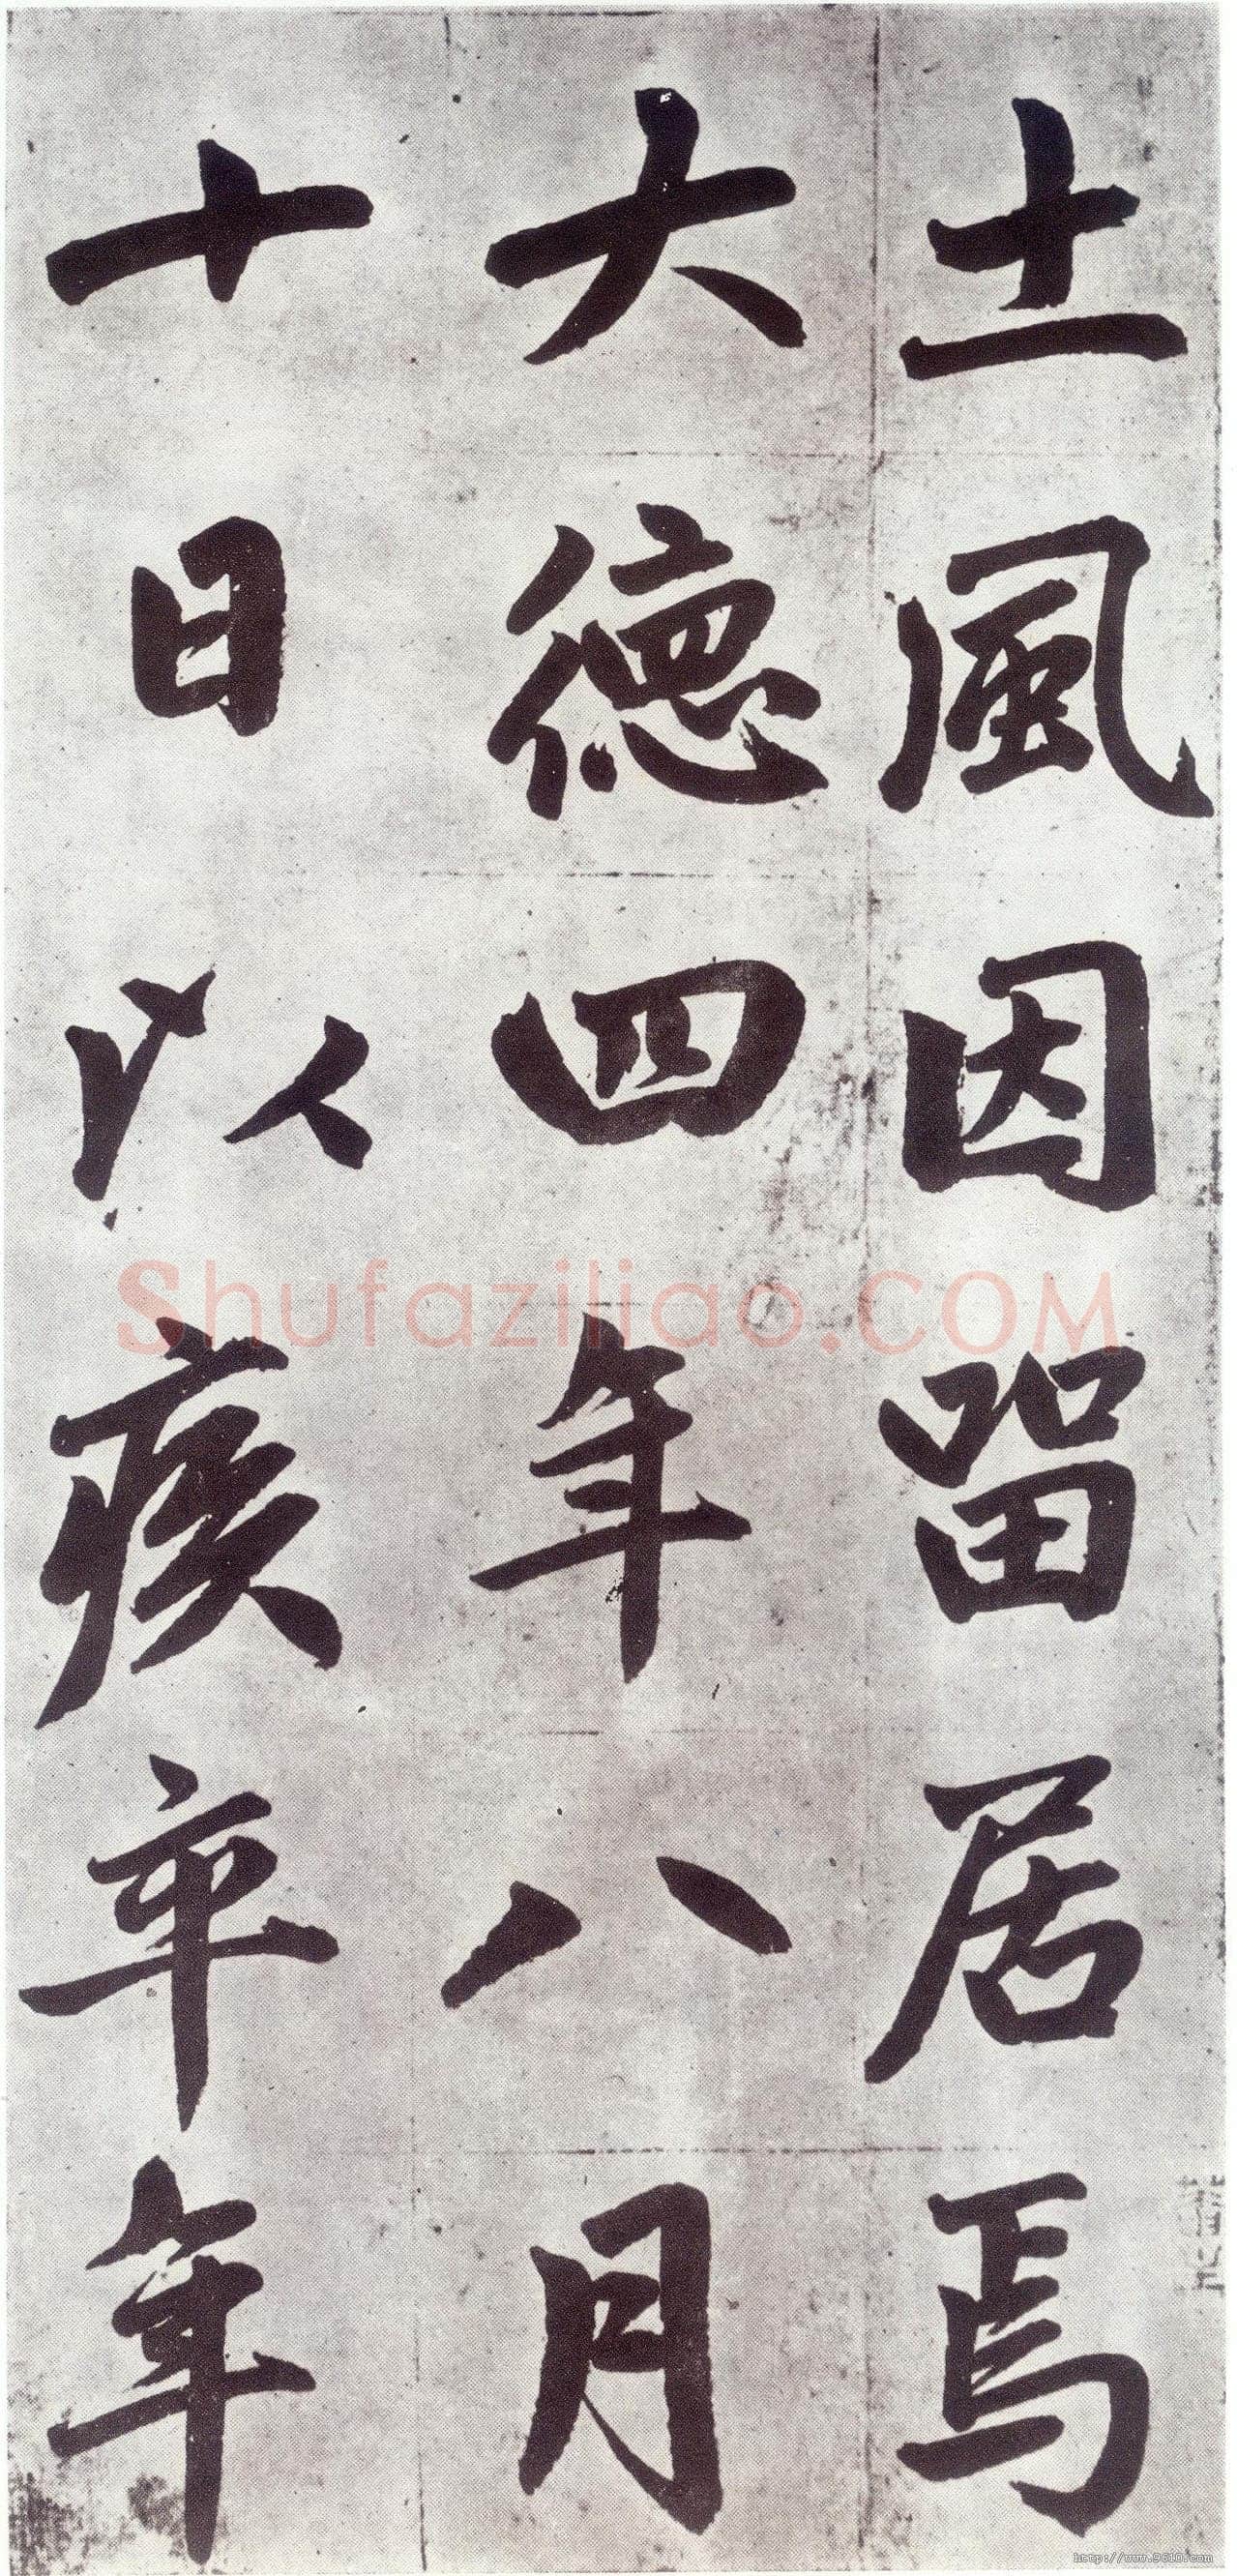 土風因留居焉
大德四年八月
十日以疾卒年
Shufaziliao.COM
http://www.9610.com